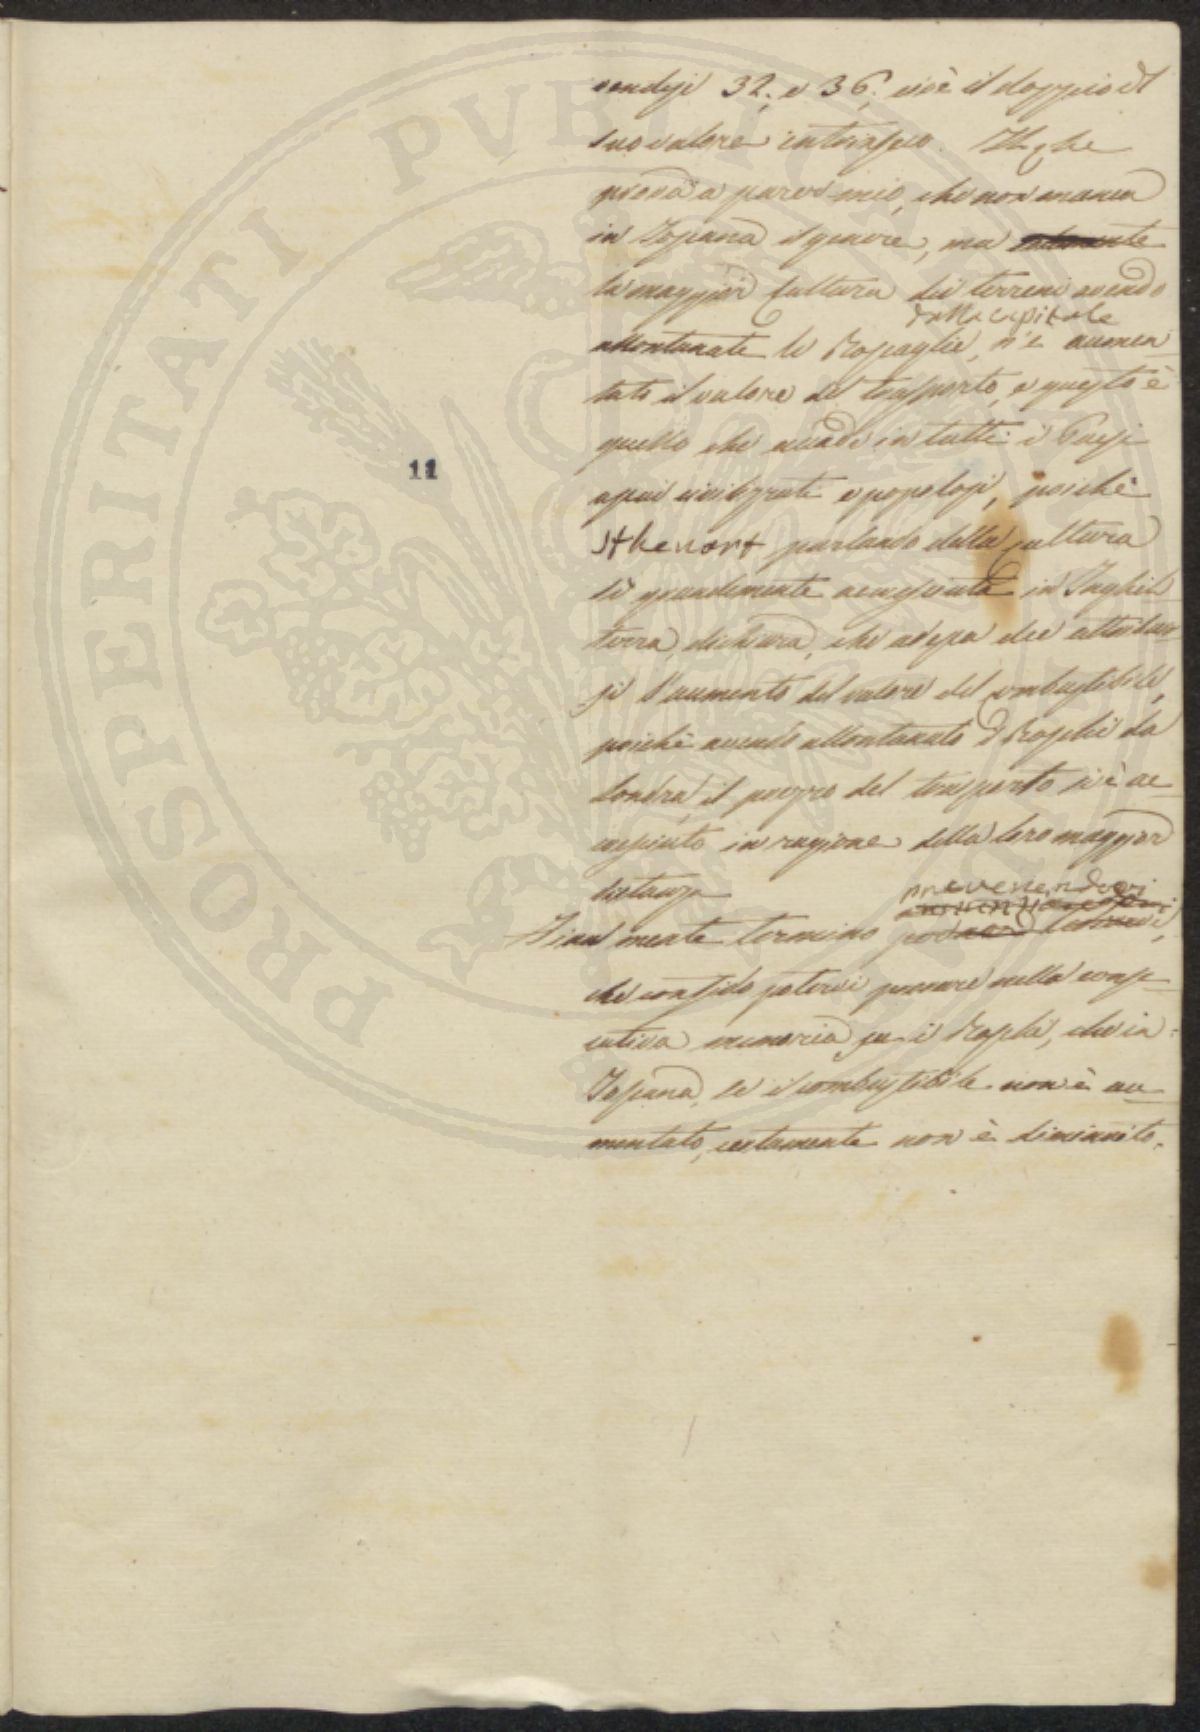 vendesi 32; e 36; cioè il doppio del
suo valore intrinseco. Il che
prova a parer mio, che non manca
in Toscana il genere, ma
la maggior cultura dei terreni avendo
dalla capitale
allontanate le Boscaglie, n'è aumen
tato il valore del trasporto, e questo è
quello che accade in tutti i Paesi
i più civilizzati e popolosi, poichè
parlando della cultura
sì grandemente accresciuta in Inghil
terra, dichiara, che ad essa dee attribuir
si l'aumento del valore del combustibile,
poichè avendo allontanato i Boschi da
Londra, il prezzo del trasporto si è ac
cresciuto in ragione della loro maggior
distanza
prevenendovi
Finalmente termino
che confido potervi provare nella conse
cutiva memoria su i Boschi, che in
Toscana, se il combustibile non è au
mentato, certamente non è diminuito.
11
PROSPERITATI PVBLICAE